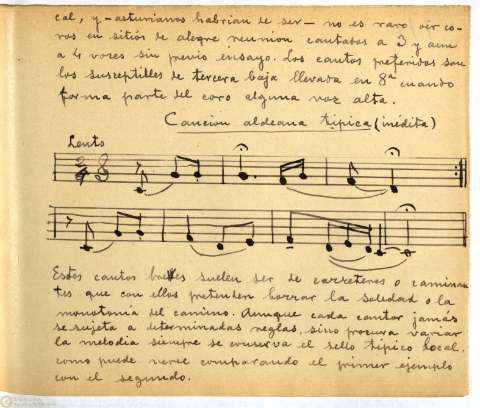 cal, y -asturianos habrían de ser- no es raro oir co-
ros en sitios de alegre reunion cantados a 3 y aun
a 4 voces sin previo ensayo. Los cantos preferidos son
los susceptibles de tercera baja llevada en 8ª cuando
forma parte del coro alguna voz alta.
Cancion aldeana típica (inédita)
Lento
Estos cantos breves suelen ser de carreteros o caminan
tes que con ellos pretenden borrar la soledad o la
monotonía del camino. Aunque cada cantor jamás
se sujeta a determinadas reglas, sino procura variar
la melodía siempre se conserva el sello típico local,
como puede verse comparando el primer ejemplo
con el segundo.